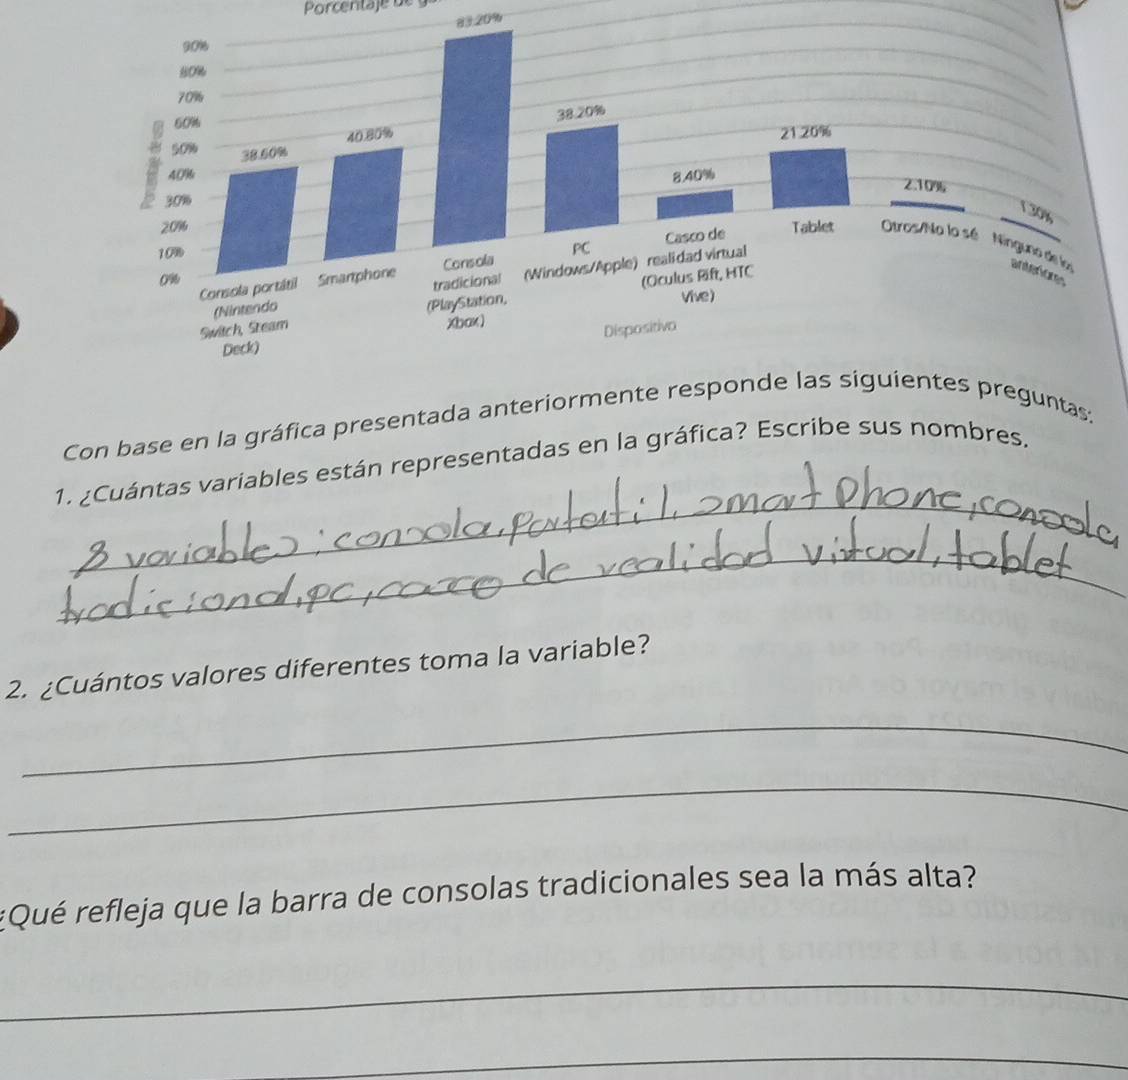 Porcentaje de
83.20%
90%
80%
70%
60%
50%
40%
30%
20%
10%
0%
38.60%
40.80%
38.20%
8.40%
21.20%
2.10%
1.30%
Consola portátil
(Nintendo
Switch, Steam
Deck)
Smartphone
Consola
tradicional
(PlayStation,
Xbox)
PC
(Windows/Apple)
Casco de
realidad virtual
(Oculus Rift, HTC
Vive)
Tablet
Otros/No lo sé
Ninguno de los
anteriores
Dispositivo
Con base en la gráfica presentada anteriormente responde las siguientes preguntas:
1. ¿Cuántas variables están representadas en la gráfica? Escribe sus nombres.
8 variables: consola, portatil, smart phone, consola
tradicional, pc, casco de realidad virtual, tablet
2. ¿Cuántos valores diferentes toma la variable?
¿Qué refleja que la barra de consolas tradicionales sea la más alta?